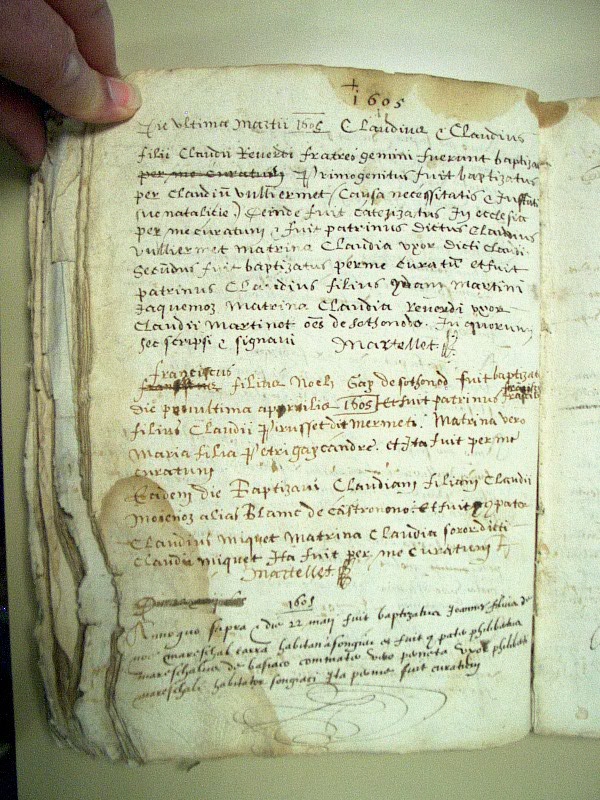 1605
Die ultima Martii 1605 Claudius & Claudius
filii Claudii Reverdi fratres gemini fuerunt baptiza
per me curatum Primogenitus fuit baptizatus
per Claudiu vulliermet (Causa necessitatis &
sive natalitie) Deinde fuit catezizatus In ecclesia
per me curatum & fuit patrinus dictus Claudius
vulliermet matrina Claudia uxor dicti Claudii
Secundus fuit baptizatus per me Curatu et fuit
patrinus Claudius filius qudam Martini
Jaquemoz Matrina Claudia Reverdi uxor
Claudii Martinot oes de sothonodo. In quorum
hec scripsi & signavi Martellet
franciscus
filius Noels Gay de sothonod fuit baptizat
die penultima apprilis 1605 Et fuit patrinus
filius Claudii Prusset dit mermet. Matrina vero
Maria filia Petri gaycandre. et Ita fuit per me
curatum
Eadem die Baptizavi Claudium filium Claudii
Morenoz alias Blanc de Castronovo. Et fuit pater
Claudius miquet Matrina Claudia soror dicti
Claudii miquet Ita fuit per me Curatum
Martellet
1605
Anno quo supra & die 22 maii fuit baptizatus Joannes filius
mareschal habitan a songiu et fuit pater philibertus
mareschalus de commater vero uxor philiberti
mareschali habitator songiaci Ita per me fuit curatum